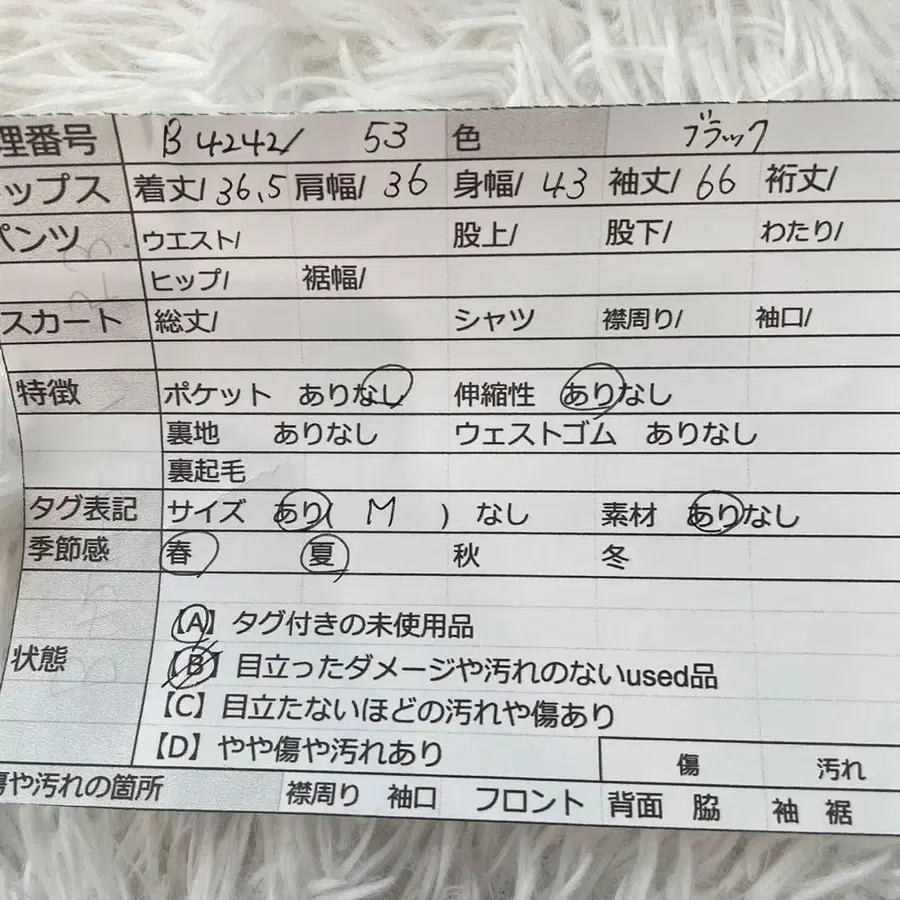 理番号 B 4242/ 53 色 ブラック
ップス 着丈/ 36.5 肩幅/ 36 身幅/ 43 袖丈/ 66 裄丈/
パンツ ウエスト/ 股上/ 股下/ わたり/
ヒップ/ 裾幅/
スカート 総丈/ シャツ 襟周り/ 袖口/
特徴 ポケット ありなし 伸縮性 ありなし
裏地 ありなし ウェストゴム ありなし
裏起毛
タグ表記 サイズ あり( M ) なし 素材 ありなし
季節感 春 夏 秋 冬
【A】タグ付きの未使用品
状態 【B】目立ったダメージや汚れのないused品
【C】目立たないほどの汚れや傷あり
【D】やや傷や汚れあり 傷 汚れ
傷や汚れの箇所 襟周り 袖口 フロント 背面 脇 袖 裾